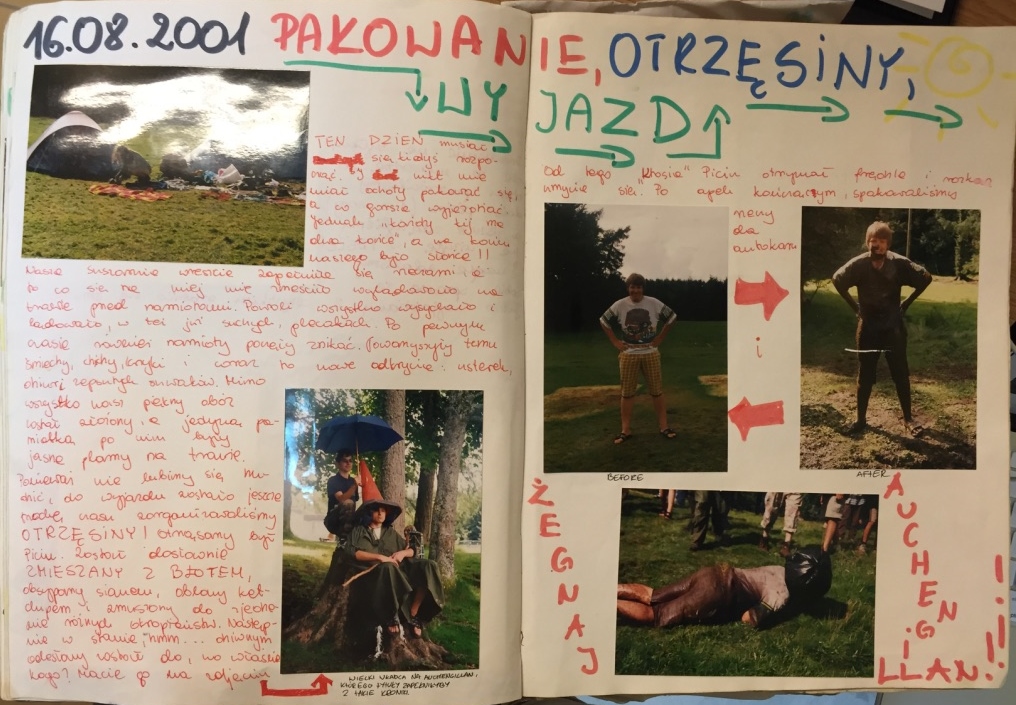 16.08.2001 PAKOWANIE, OTRZĘSINY,
WYJAZD
TEN DZIEŃ musiał
się kiedyś rozpo-
cząć. I nikt nie
miał ochoty pakować się,
a co gorsza wyjeżdżać.
Jednak "każdy kij ma
dwa końce", a na końcu
naszego było słońce!!
Nasza suszarnia wreszcie zapełniła się rzeczami, a
to co się na niej nie zmieściło wykładaliśmy na
trawie przed namiotami. Powoli wszystko wysychało i
lądowało, w też już suchych, plecakach. Po pewnym
czasie również namioty poczęły znikać. Towarzyszyły temu
śmiechy, chichy, krzyki i coraz to nowe odkrycie: usterek,
zepsutych suwaków. Mimo
wszystko nasz piękny obóz
został złożony, a jedyną pa-
miątką po nim były
jasne plamy na trawie.
Ponieważ nie lubimy się nu-
dzić, do wyjazdu zostało jeszcze
trochę czasu zorganizowaliśmy
OTRZĘSINY! Otrząsany był
Picin. Został dosłownie
ZMIESZANY Z BŁOTEM,
obsypany sianem, oblany ket-
chupem i zmuszony do zjedze-
nia różnych obrzydlistw. Następ-
nie w stanie, hmm... dziwnym
odesłany został do, no właśnie
kogo? Macie go na zdjęciu
WIELKI WŁADCA NA AUCHENGILLAN,
KTÓREGO TYŁEK ZAPEWNE BY
Z TAKIE KRONIKI.
Od tego "Ktosia" Picin otrzymał frędzle i rozkaz
umycia się. Po apelu kończącym, spakowaliśmy
rzeczy
do
autokaru
i
BEFORE
AFTER
ŻEGNAJ
AUCHENGILLAN!!!